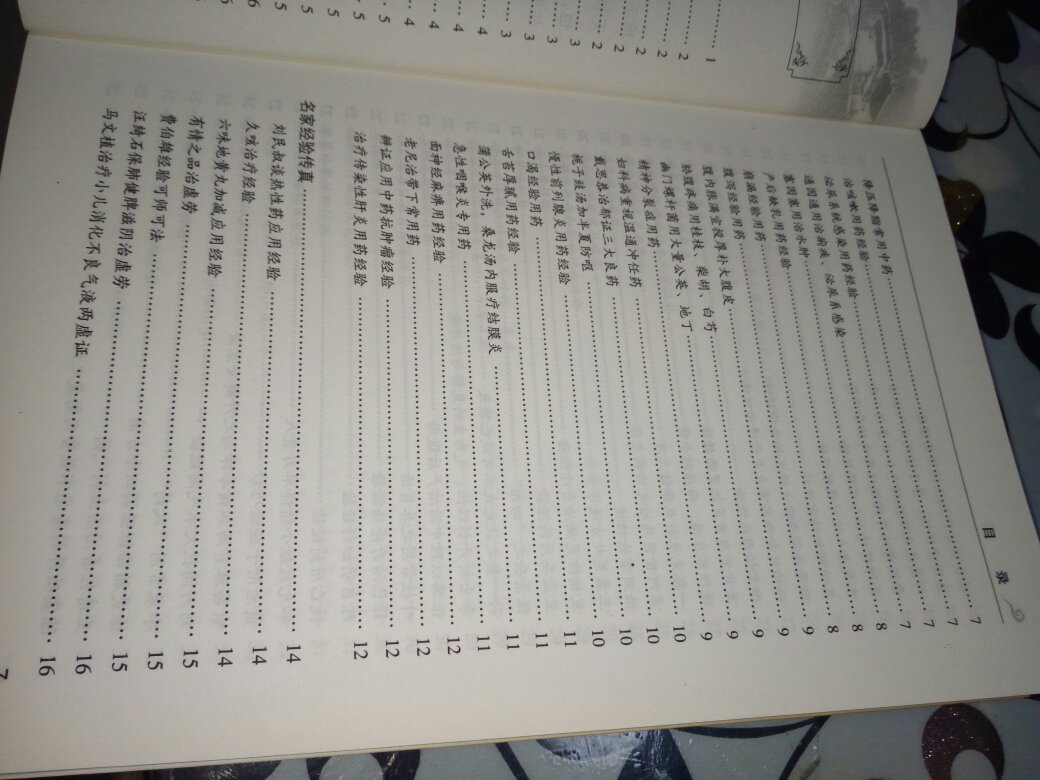 1
2
2
2
2
3
3
3
4
4
4
4
5
5
5
5
6
6
目 录
降压降脂常用中药……7
治咳嗽用药经验……7
泌尿系统感染用药经验……7
通因通用治痢疾、泌尿系感染……7
塞因塞用治水肿……8
产后缺乳用药经验……8
崩漏经验用药……8
腹泻经验用药……9
腹内胀满宜投厚朴大腹皮……9
胁腹疼痛用桂枝、柴胡、白芍……9
幽门螺杆菌用大量公英、地丁……9
精神分裂症用药……9
妇科病重视温通冲任药……10
戴思恭治郁证三大良药……10
栀子豉汤加半夏防呕……10
慢性前列腺炎用药经验……10
口渴经验用药……11
舌苔厚腻用药经验……11
蒲公英外洗,桑龙汤内服疗结膜炎……11
急性咽喉炎专用药……11
面神经麻痹用药经验……12
老尼治带下常用药……12
辨证应用中药抗肿瘤经验……12
治疗传染性肝炎用药经验……12
名家经验传真……14
刘民叔谈热性药应用经验……14
久咳治疗经验……14
六味地黄丸加减应用经验……15
有情之品治虚劳……15
费伯雄经验可师可法……15
汪绮石保肺健脾滋阴治虚劳……16
马文植治疗小儿消化不良气液两虚证……16
7